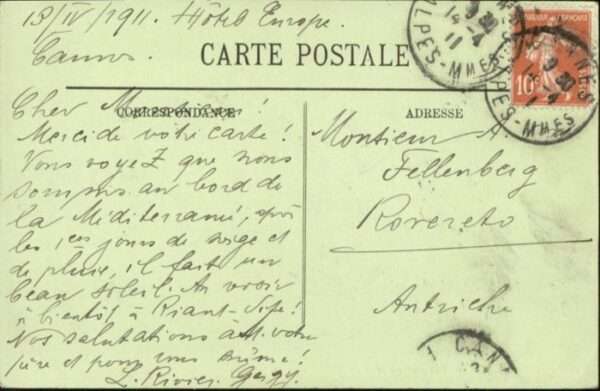 13/IV/1911. Hôtel Europe.
Cannes.
CARTE POSTALE
CORRESPONDANCE
ADRESSE
Cher Monsieur!
Merci de votre carte!
Vous voyez que nous
sommes au bord de
la Méditerranée, après
les 1ers jours de neige et
de pluie, il fait un
beau soleil. Au revoir
à bientôt à Riant-
Nos salutations à votre
père et pour vous même!
L. Rivier-
Monsieur A.
Fellenberg
Rovereto
Autriche
10
CANNES
9 30
14-4
11
ALPES-MMES
9 30
14-4
11
ALPES-MMES
CAN